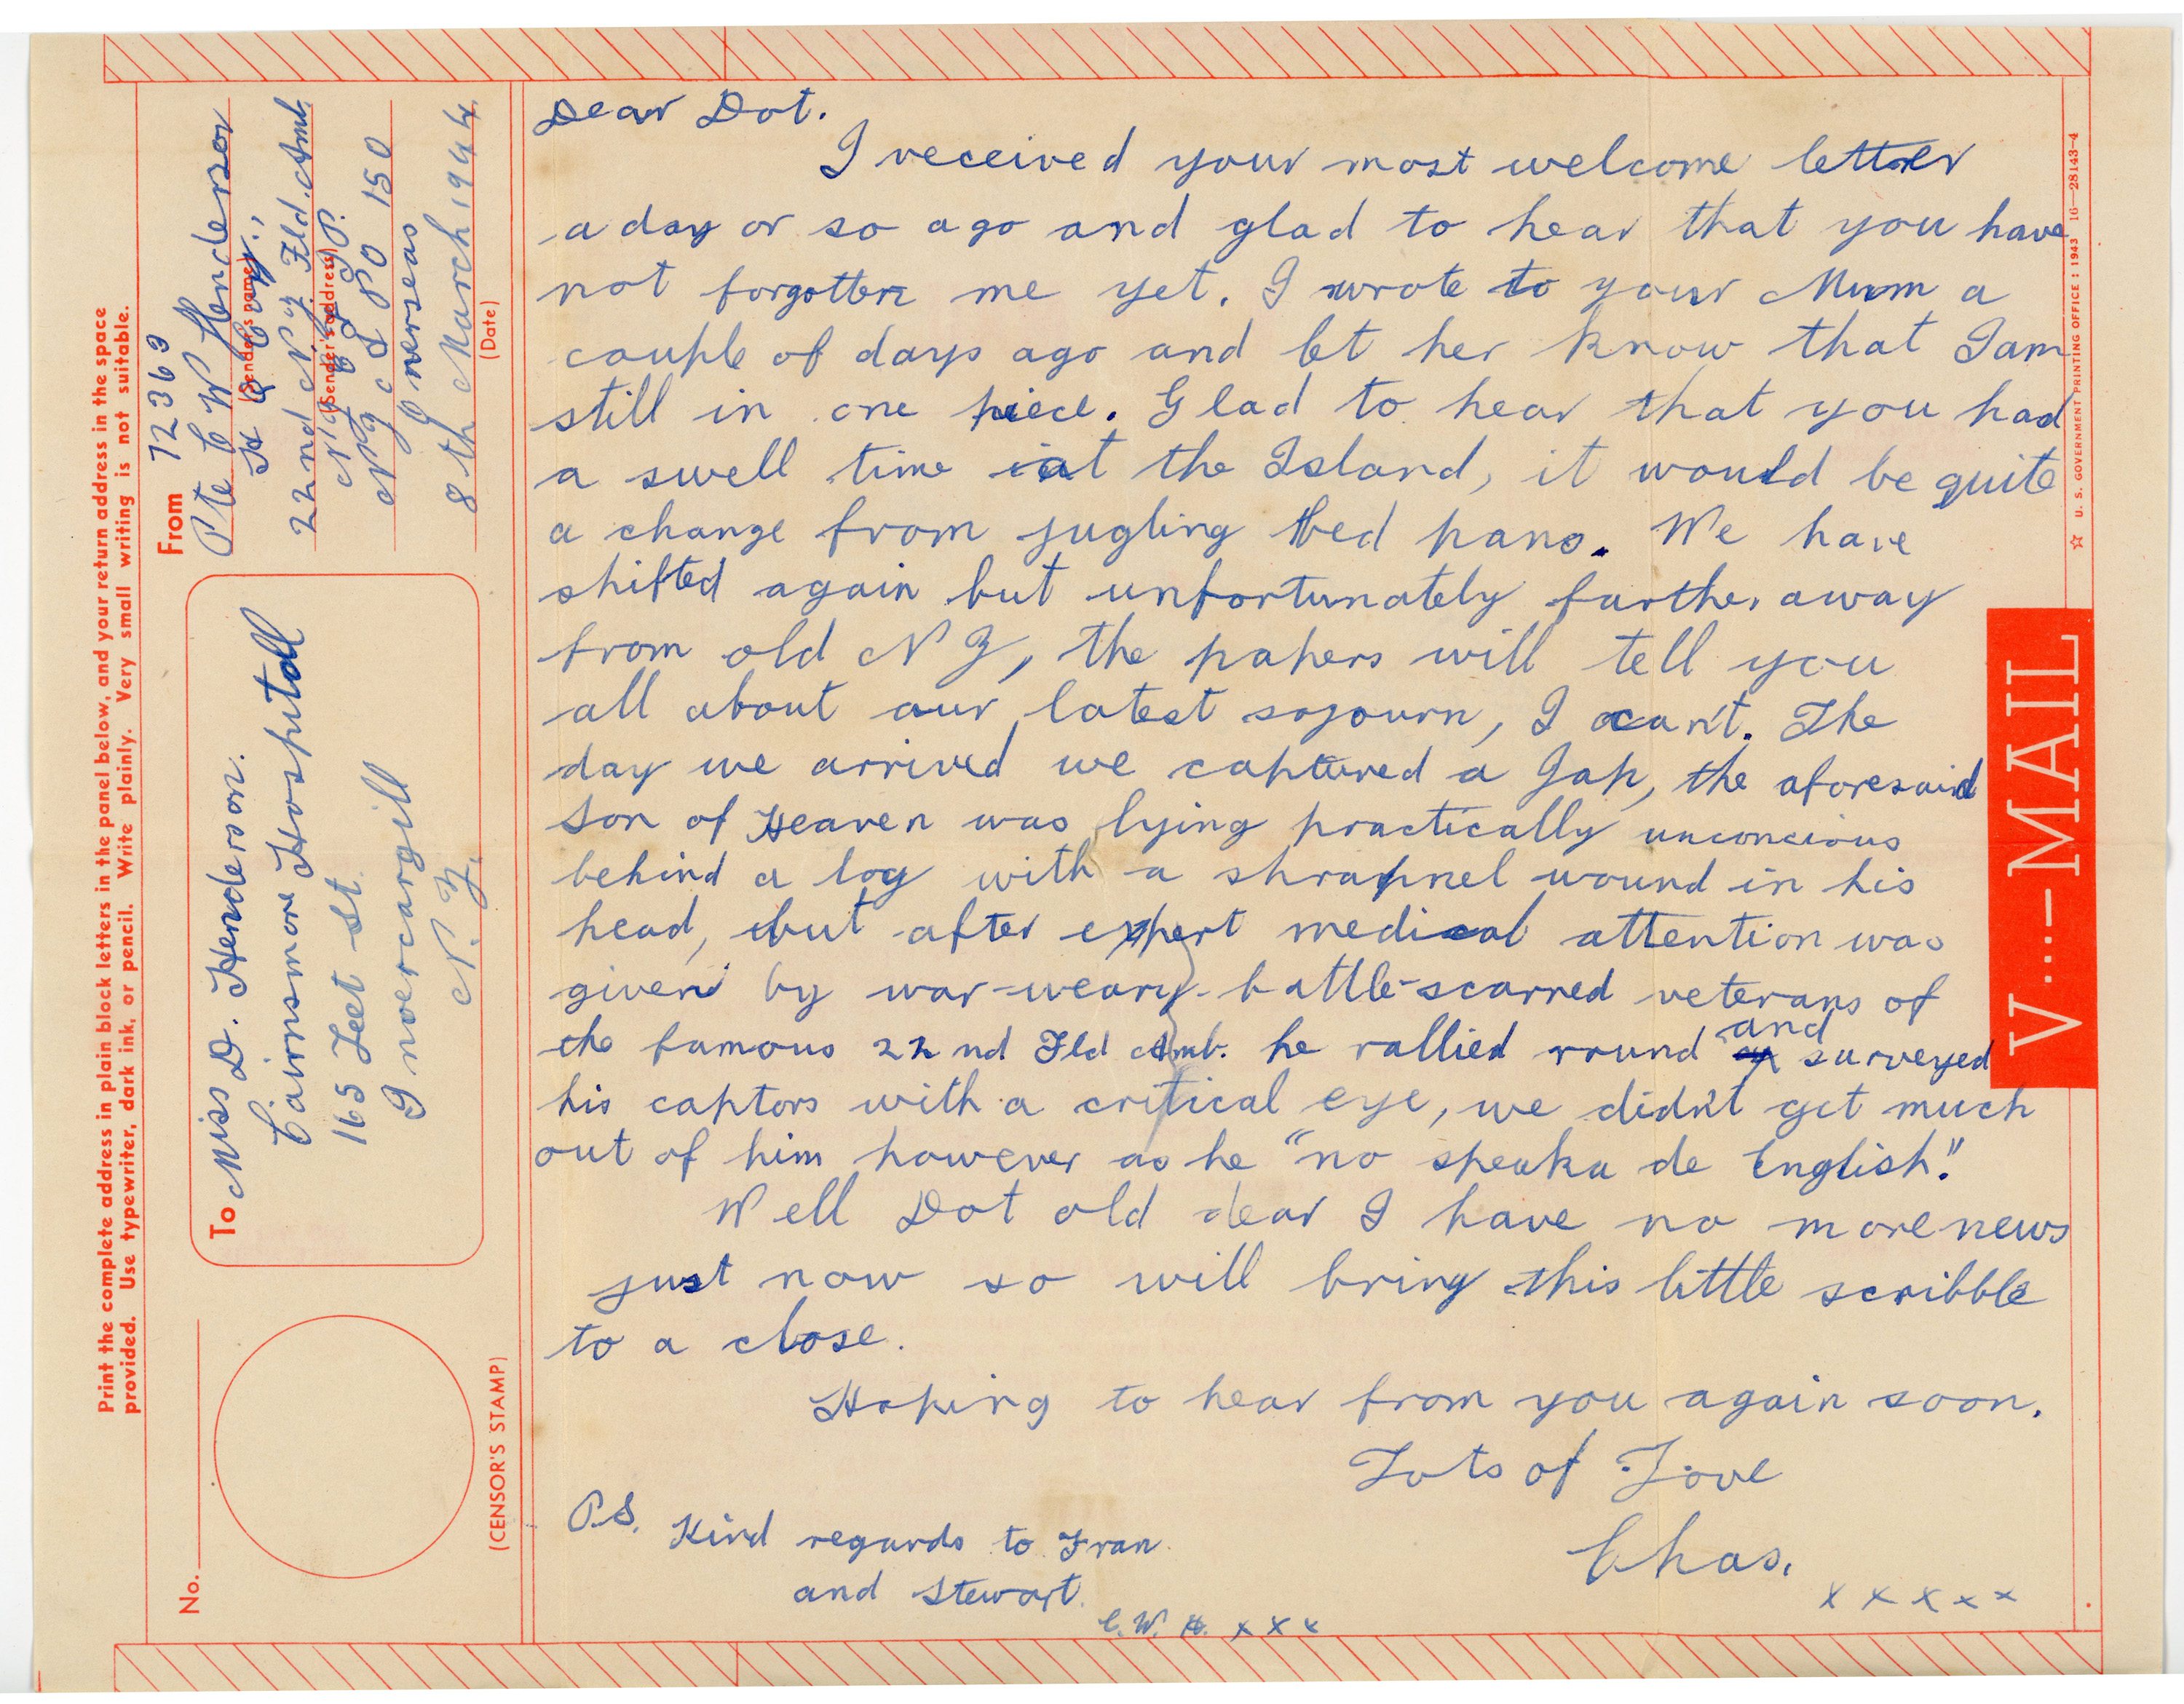 Print the complete address in plain block letters in the panel below, and your return address in the space
provided. Use typewriter, dark ink, or pencil. Write plainly. Very small writing is not suitable.
No.
(CENSOR'S STAMP)
To Miss D. Henderson.
Cairnsmore Hosphitall
165 Leet St
Invercargill
N.Z.
From
72363
Pte C W Henderson
(Sender's name)
H Q Coy.,
22nd N.Z. Fld. Amb.
(Sender's address)
N.Z.E.F.I.P.
N.Z. A P O 150
Overseas
8th March 1944
(Date)
Dear Dot.
I received your most welcome letter
a day or so ago and glad to hear that you have
not forgotten me yet. I wrote to your Mum a
couple of days ago and let her know that I am
still in one piece. Glad to hear that you had
a swell time at the Island, it would be quite
a change from jugling bed pans. We have
shifted again but unfortunately further away
from old NZ, the papers will tell you
all about our latest sojourn, I can't. The
day we arrived we captured a Jap, the aforesaid
son of Heaven was lying practically unconcious
behind a log with a shrapnel wound in his
head, but after expert medical attention was
given by war-weary-battle-scarred veterans of
the famous 22nd Fld Amb. he rallied round and surveyed
his captors with a critical eye, we didn't get much
out of him however as he "no speaka de English".
Well Dot old dear I have no more news
just now so will bring this little scribble
to a close.
Hoping to hear from you again soon.
Lots of Love
Chas.
x x x x x
P.S. Kind regards to Fran
and Stewart.
C.W.H. x x x
☆ U. S. GOVERNMENT PRINTING OFFICE : 1943 16—28143-4
V···—MAIL